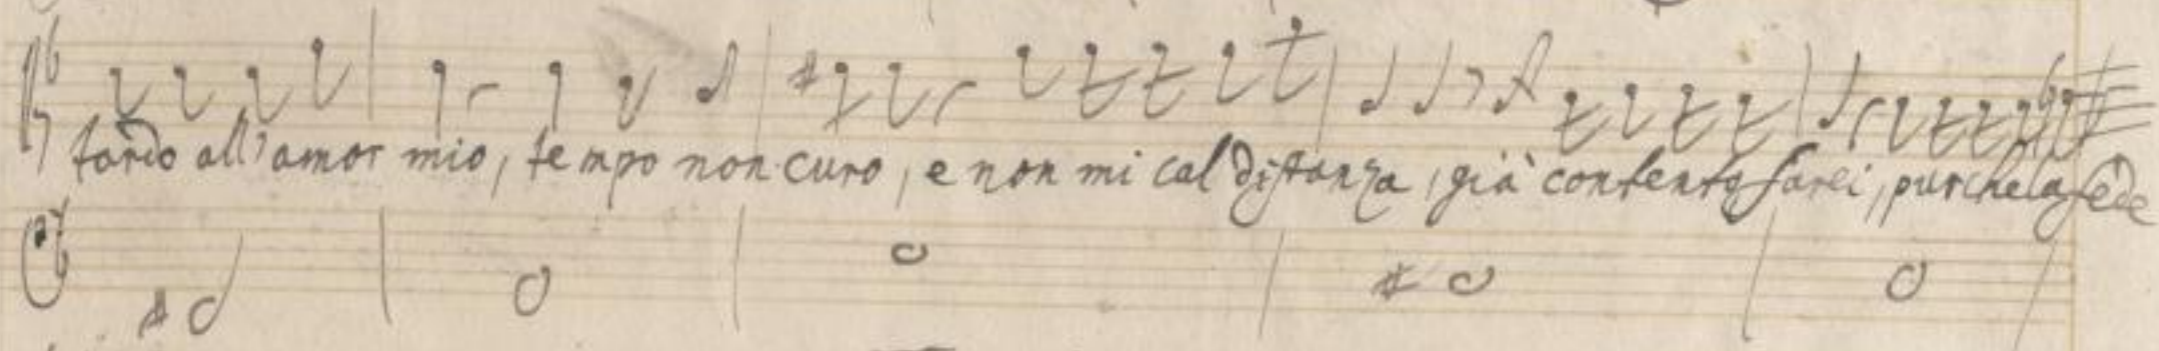 tardo all'amor mio, tempo non curo, e non mi cal distanza, già contento sarei, purche la fede